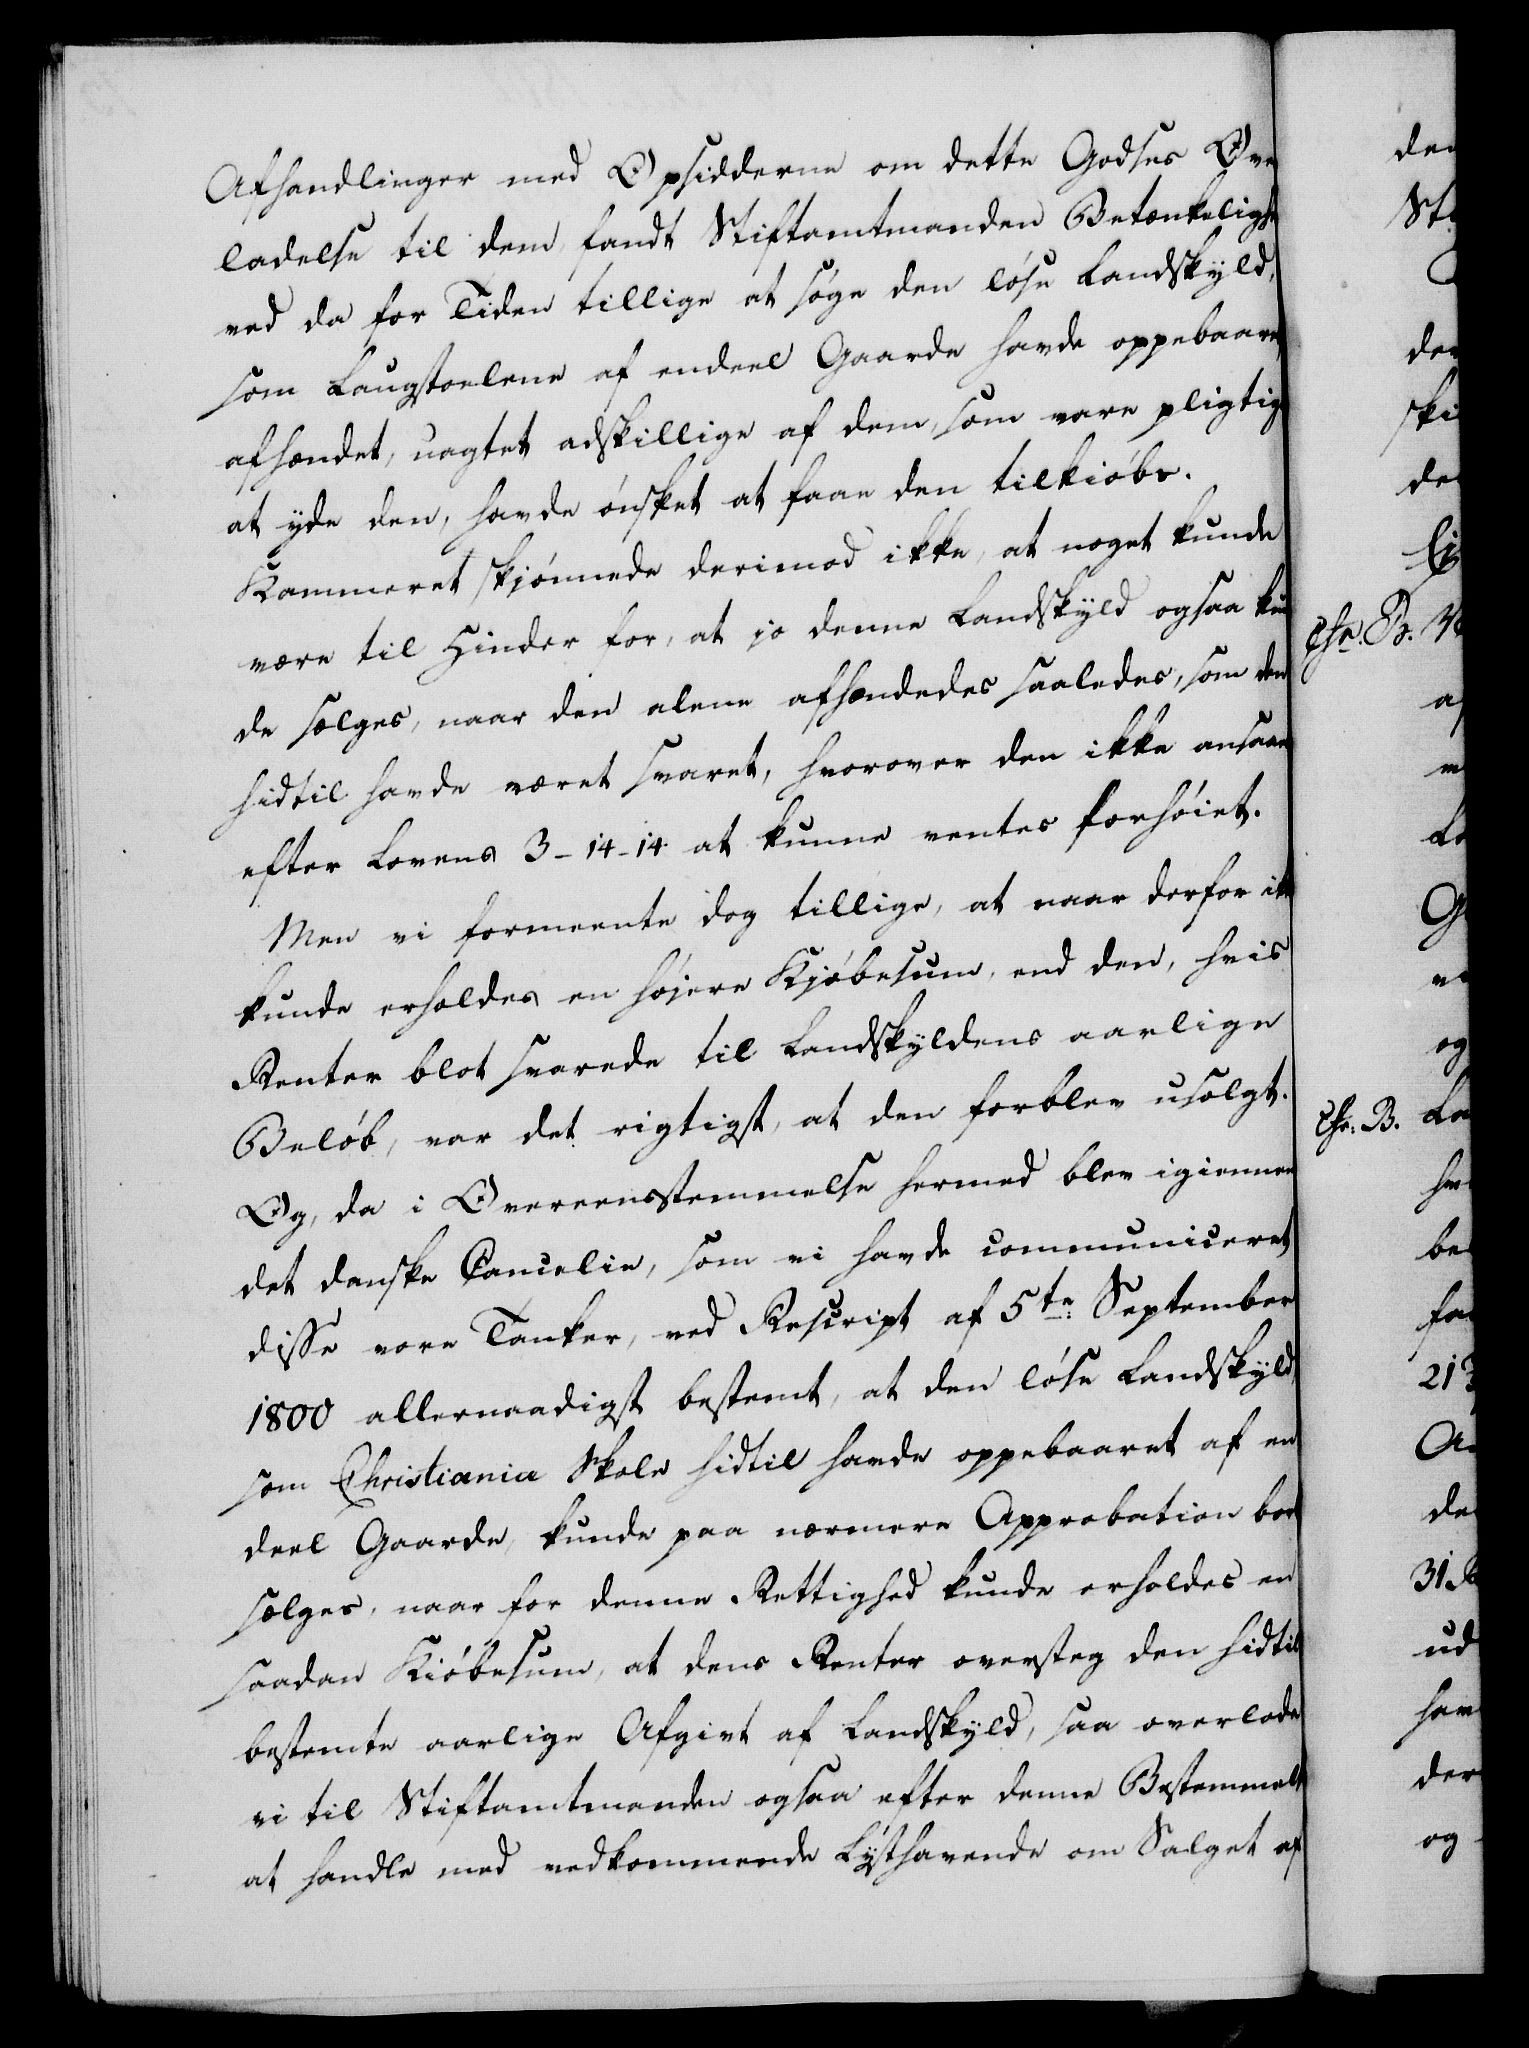 Afhandlinger med Opsidderne om dette Godses Ove
ladelse til dem, fandt Stiftamtmanden Betænkeligh
ved da for Tiden tillige at søge den løse Landskyld,
som Laugstolene af endeel Gaarde havde oppebaaret,
afhændet, uagtet adskillige af dem, som vare pligtige
at yde den, havde ønsket at faae den tilkiøbs.
Kammeret skjønnede derimod ikke, at noget kunde
være til Hinder for, at jo denne Landskyld ogsaa kun
de sælges, naar den alene afhændedes saaledes, som den
hidtil havde været svaret, hvorover den ikke ansaaes
efter Lovens 3-14-14 at kunne ventes forhøiet.
Men vi formeente dog tillige, at naar derfor ikke
kunde erholdes en højere Kjøbesum, end den, hvis
Renter blot svarede til Landskyldens aarlige
Beløb, var det rigtigst, at den forblev usolgt.
Og, da i Overeensstemmelse hermed blev igiennem
det danske Cancelie, som vi havde communiceret
disse vore Tanker, ved Rescript af 5te September
1800 allernaadigst bestemt, at den løse Landskyld,
som Christiania Skole hidtil havde oppebaaret af en
deel Gaarde, kunde paa nærmere Approbation bort
sælges, naar for denne Rettighed kunde erholdes en
saadan Kiøbesum, at dens Renter oversteg den hidtil
bestemte aarlige Afgivt af Landskyld, saa overlode
vi til Stiftamtmanden ogsaa efter denne Bestemmelse
at handle med vedkommende Lysthavende om Salget af